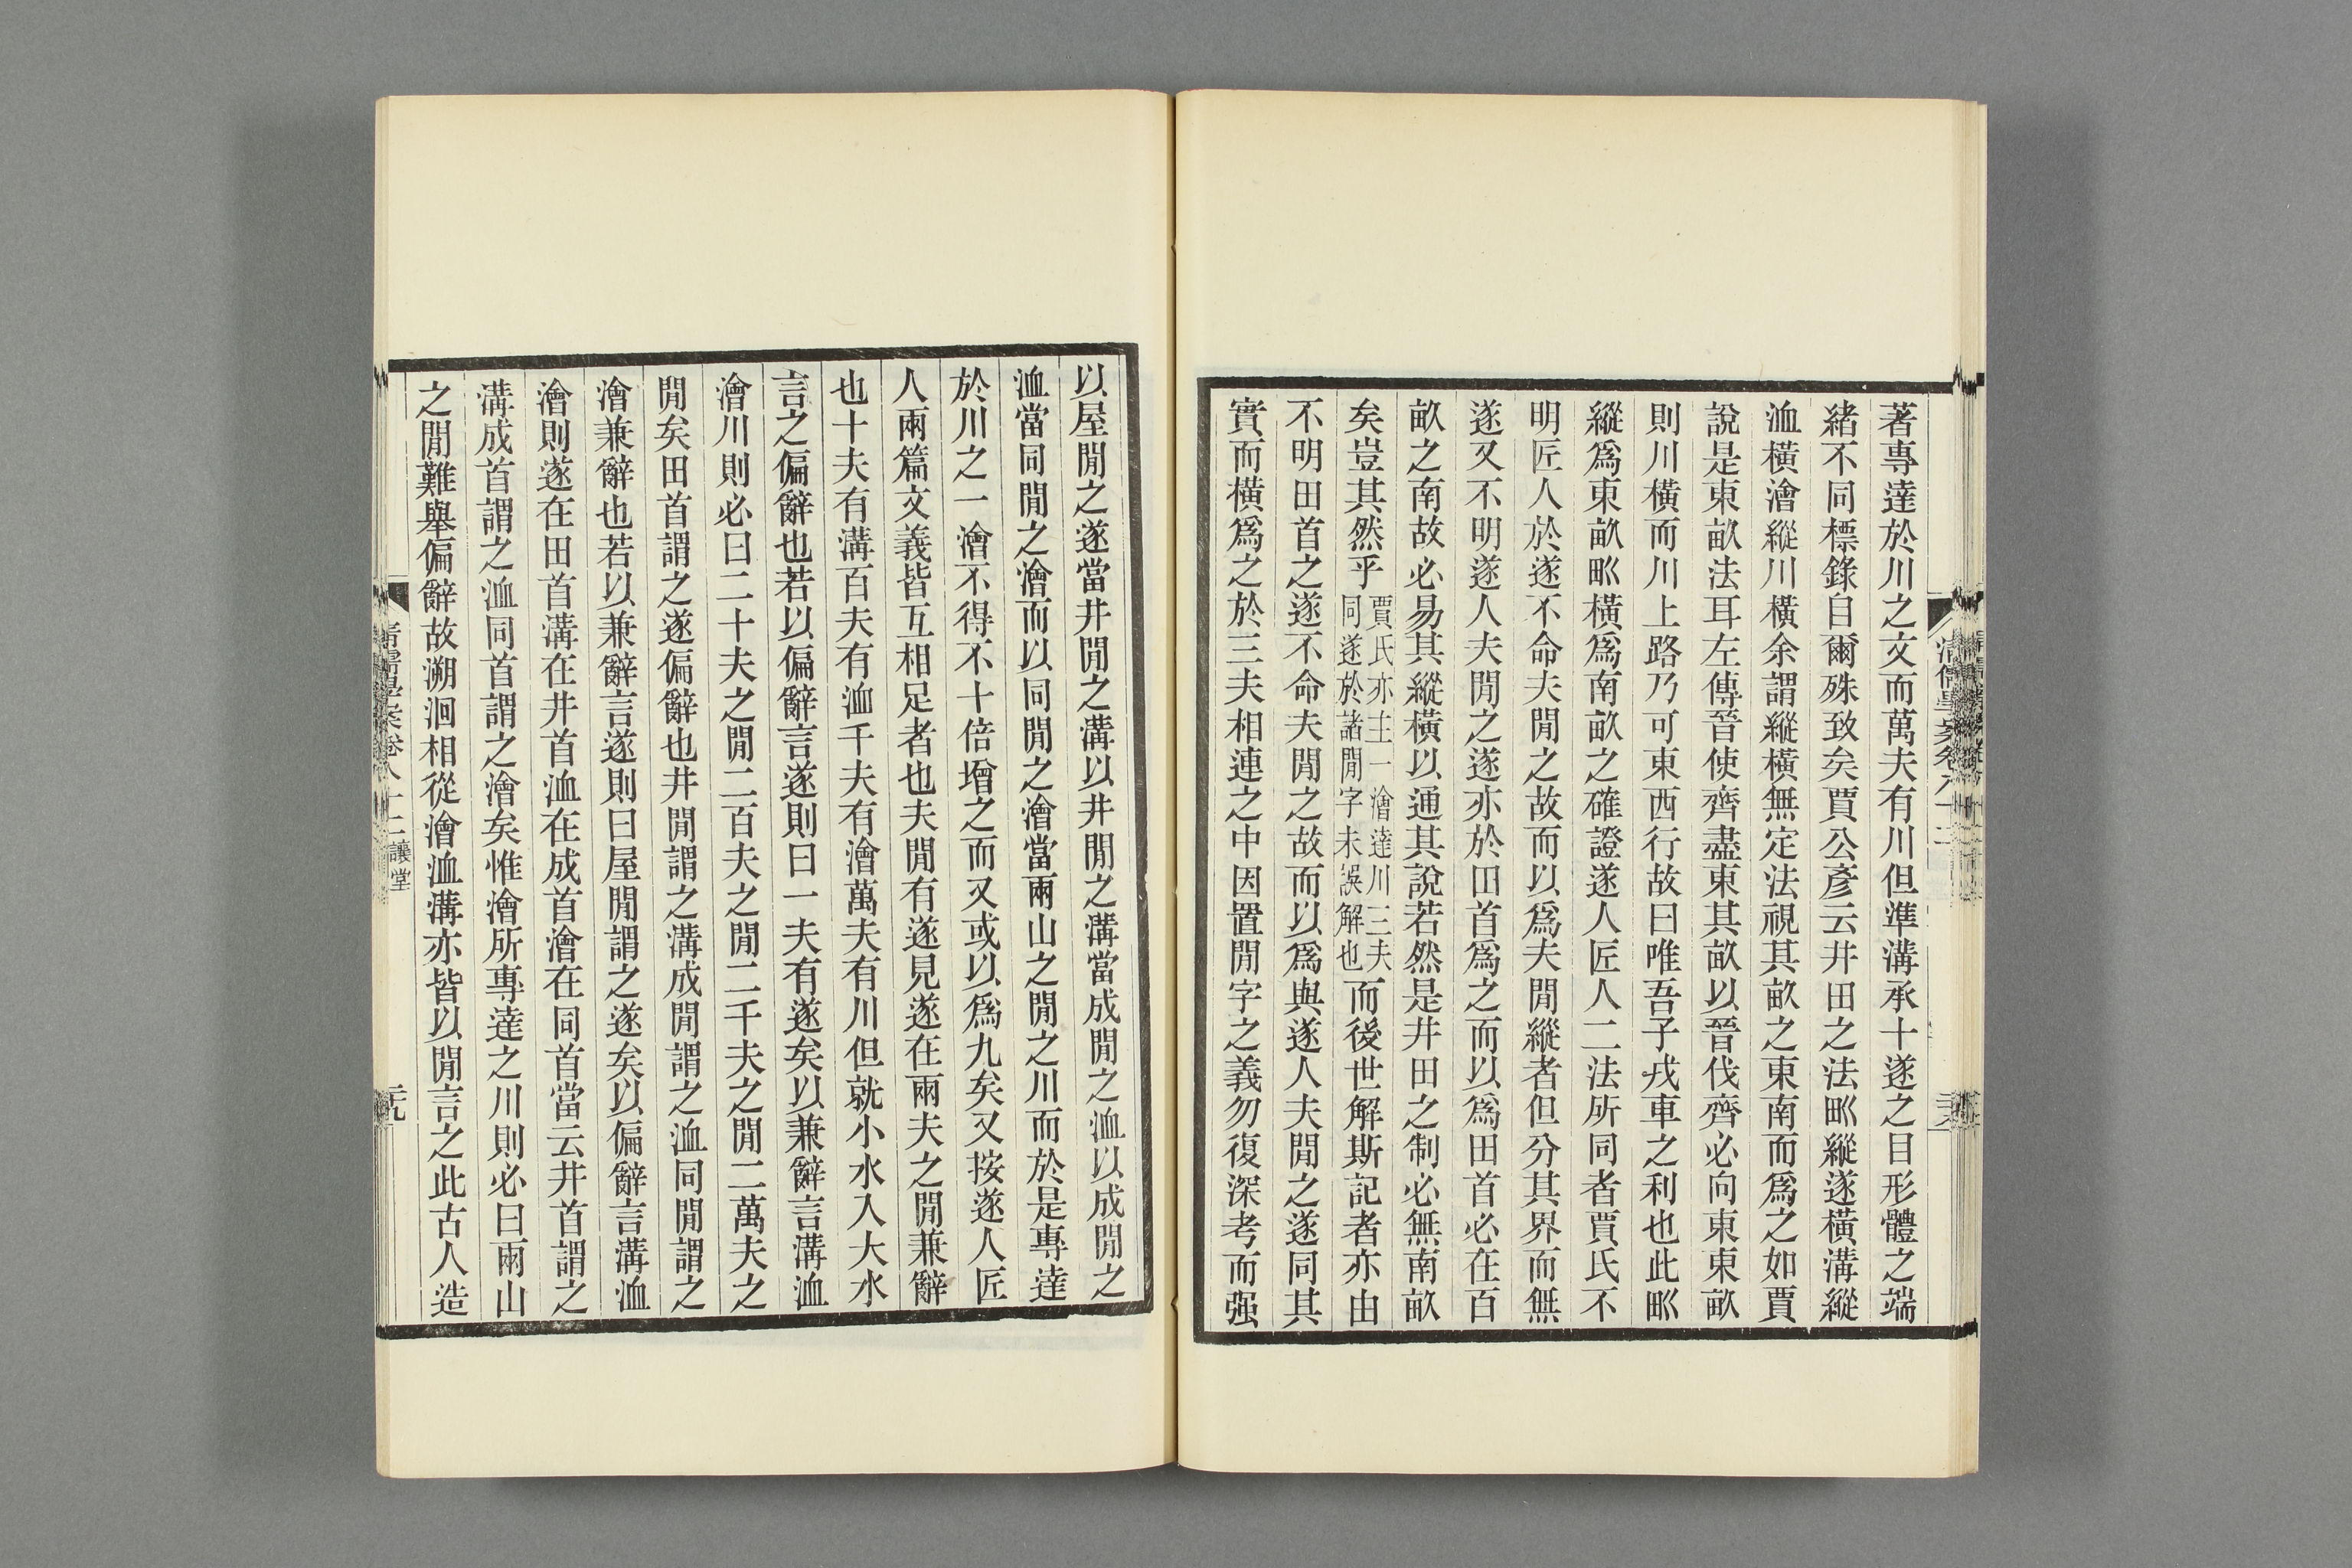 著專達於川之文而萬夫有川但準溝承十遂之目形體之端
緒不同標錄自爾殊致矣賈公彥云井田之法𤰕縱遂橫溝縱
洫橫澮縱川橫余謂縱橫無定法視其畝之東南而爲之如賈
說是東畝法耳左傳晉使齊盡東其畝以晉伐齊必向東東畝
則川橫而川上路乃可東西行故曰唯吾子戎車之利也此𤰕
縱爲東畝𤰕橫爲南畝之確證遂人匠人二法所同者賈氏不
明匠人於遂不命夫閒之故而以爲夫閒縱者但分其界而無
遂又不明遂人夫閒之遂亦於田首爲之而以爲田首必在百
畝之南故必易其縱橫以通其說若然是井田之制必無南畝
矣豈其然乎賈氏亦主一澮達川三夫同遂於諸閒字未誤解也而後世解斯記者亦由
不明田首之遂不命夫閒之故而以爲與遂人夫閒之遂同其
實而橫爲之於三夫相連之中因置閒字之義勿復深考而强
以屋閒之遂當井閒之溝以井閒之溝當成閒之洫以成閒之
洫當同閒之澮而以同閒之澮當兩山之閒之川而於是專達
於川之一澮不得不十倍增之而又或以爲九矣又按遂人匠
人兩篇文義皆互相足者也夫閒有遂見遂在兩夫之閒兼辭
也十夫有溝百夫有洫千夫有澮萬夫有川但就小水入大水
言之偏辭也若以偏辭言遂則曰一夫有遂矣以兼辭言溝洫
澮川則必曰二十夫之閒二百夫之閒二千夫之閒二萬夫之
閒矣田首謂之遂偏辭也井閒謂之溝成閒謂之洫同閒謂之
澮兼辭也若以兼辭言遂則曰屋閒謂之遂矣以偏辭言溝洫
澮則遂在田首溝在井首洫在成首澮在同首當云井首謂之
溝成首謂之洫同首謂之澮矣惟澮所專達之川則必曰兩山
之閒難舉偏辭故溯洄相從澮洫溝亦皆以閒言之此古人造